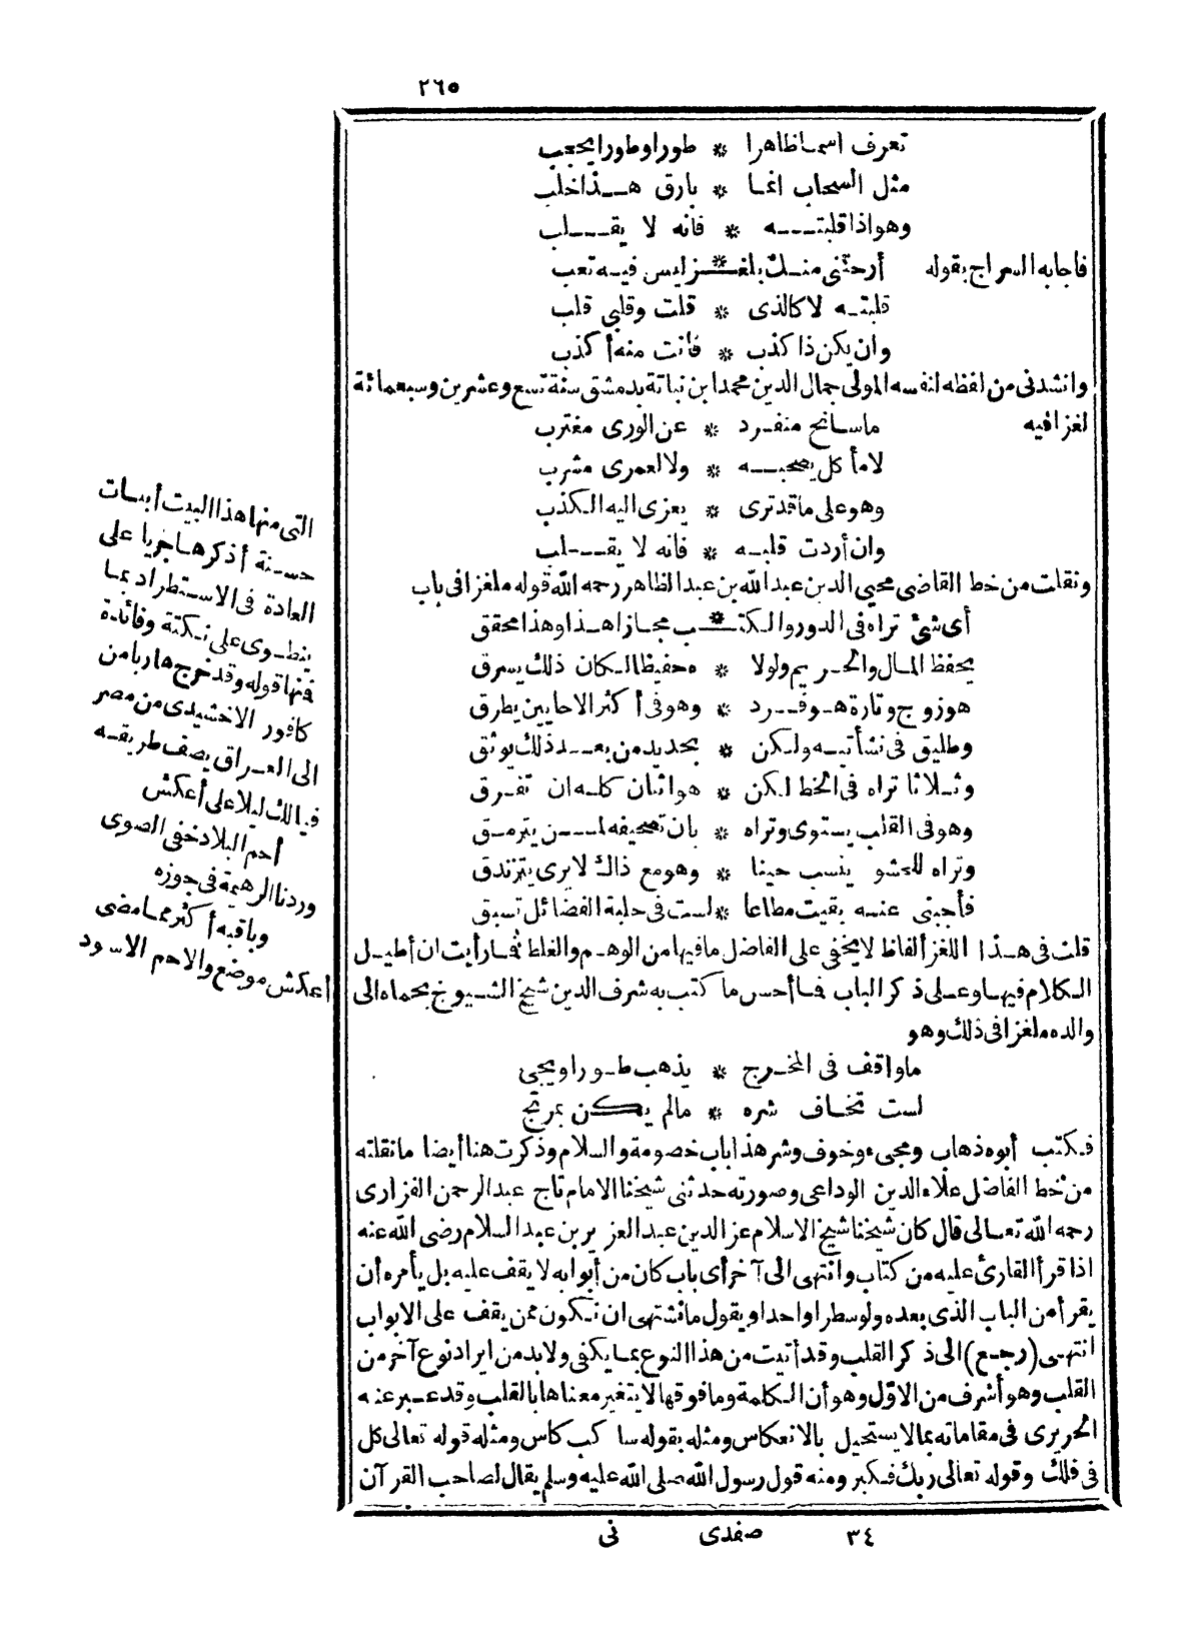 ٢٦٥
تعرف اسما ظاهرا * طورا وطورا يحجب
مثل السحاب انما * بارق هذا خلب
وهو اذا قلبته * فانه لا يقلب
فاجابه السراج بقوله أرحتنى منك بلغز * ليس فيه تعب
قلبته لا كالذى * قلت وقلبى قلب
وان يكن ذا كذب * فانت منه أكذب
وانشدنى من لفظه لنفسه المولى جمال الدين محمد ابن نباتة بدمشق سنة تسع وعشرين وسبعمائة
لغزا فيه ما سانح منفرد * عن الورى مغترب
لا مأكل يصحبه * ولا لعمرى مشرب
وهو على ما قد ترى * يعزى اليه الكذب
وان أردت قلبه * فانه لا يقلب
ونقلت من خط القاضى محيى الدين عبد الله بن عبد الظاهر رحمه الله قوله ملغزا فى باب
أى شئ تراه فى الدور والكتب * مجازا هذا وهذا محقق
يحفظ المال والحريم ولولا * ه حفيظا لكان ذلك يسرق
هو زوج وتارة هو فرد * وهو فى أكثر الاحايين يطرق
وطليق فى نشأتيه ولكن * بحديد من بعد ذلك يوثق
وثلاثا تراه فى الخط لكن * هو اثنان كله ان تفرق
وهو فى القلب يستوى وتراه * بان تصحيفه لمن يترمق
وتراه للحشو ينسب حينا * وهو مع ذاك لا يرى يتزندق
فأجبنى عنه بقيت مطاعا * لست فى حلبة الفضائل تسبق
قلت فى هذا اللغز ألفاظ لا يخفى على الفاضل ما فيها من الوهم والغلط فما رأيت ان أطيل
الكلام فيها وعلى ذكر الباب فما أحسن ما كتب به شرف الدين شيخ الشيوخ بحماه الى
والده ملغزا فى ذلك وهو
ما واقف فى المخرج * يذهب طورا ويجى
لست تخاف شره * ما لم يكن بمرتج
فكتب أبوه ذهاب ومجىء وخوف وشر هذا باب خصومة والسلام وذكرت هنا أيضا ما نقلته
من خط الفاضل علاء الدين الوداعى وصورته حدثنى شيخنا الامام تاج عبد الرحمن الفزارى
رحمه الله تعالى قال كان شيخنا شيخ الاسلام عز الدين عبد العزيز بن عبد السلام رضى الله عنه
اذا قرأ القارئ عليه من كتاب وانتهى الى آخر أى باب كان من أبوابه لا يقف عليه بل يأمره أن
يقرأ من الباب الذى بعده ولو سطرا واحدا ويقول ما نشتهى ان نكون ممن يقف على الابواب
انتهى (رجع) الى ذكر القلب وقد أتيت من هذا النوع بما يكفى ولا بد من ايراد نوع آخر من
القلب وهو أشرف من الاول وهو أن الكلمة وما فوقها لا يتغير معناها بالقلب وقد عبر عنه
الحريرى فى مقاماته بما لا يستحيل بالانعكاس ومثله بقوله ساكب كاس ومثله قوله تعالى كل
فى فلك وقوله تعالى ربك فكبر ومنه قول رسول الله صلى الله عليه وسلم يقال لصاحب القرآن
٣٤ صفدى نى
التى منها هذا البيت أبيات
حسنة أذكرها جريا على
العادة فى الاستطراد بما
ينطوى على نكتة وفائدة
فنها قوله وقد خرج هاربا من
كافور الاخشيدى من مصر
الى العراق يصف طريقه
فيالك ليلا على أعكش
أحم البلاد خفى الصوى
وردنا الرهيمة فى جوزه
وباقيه أكثر مما مضى
أعكش موضع والاحم الاسود